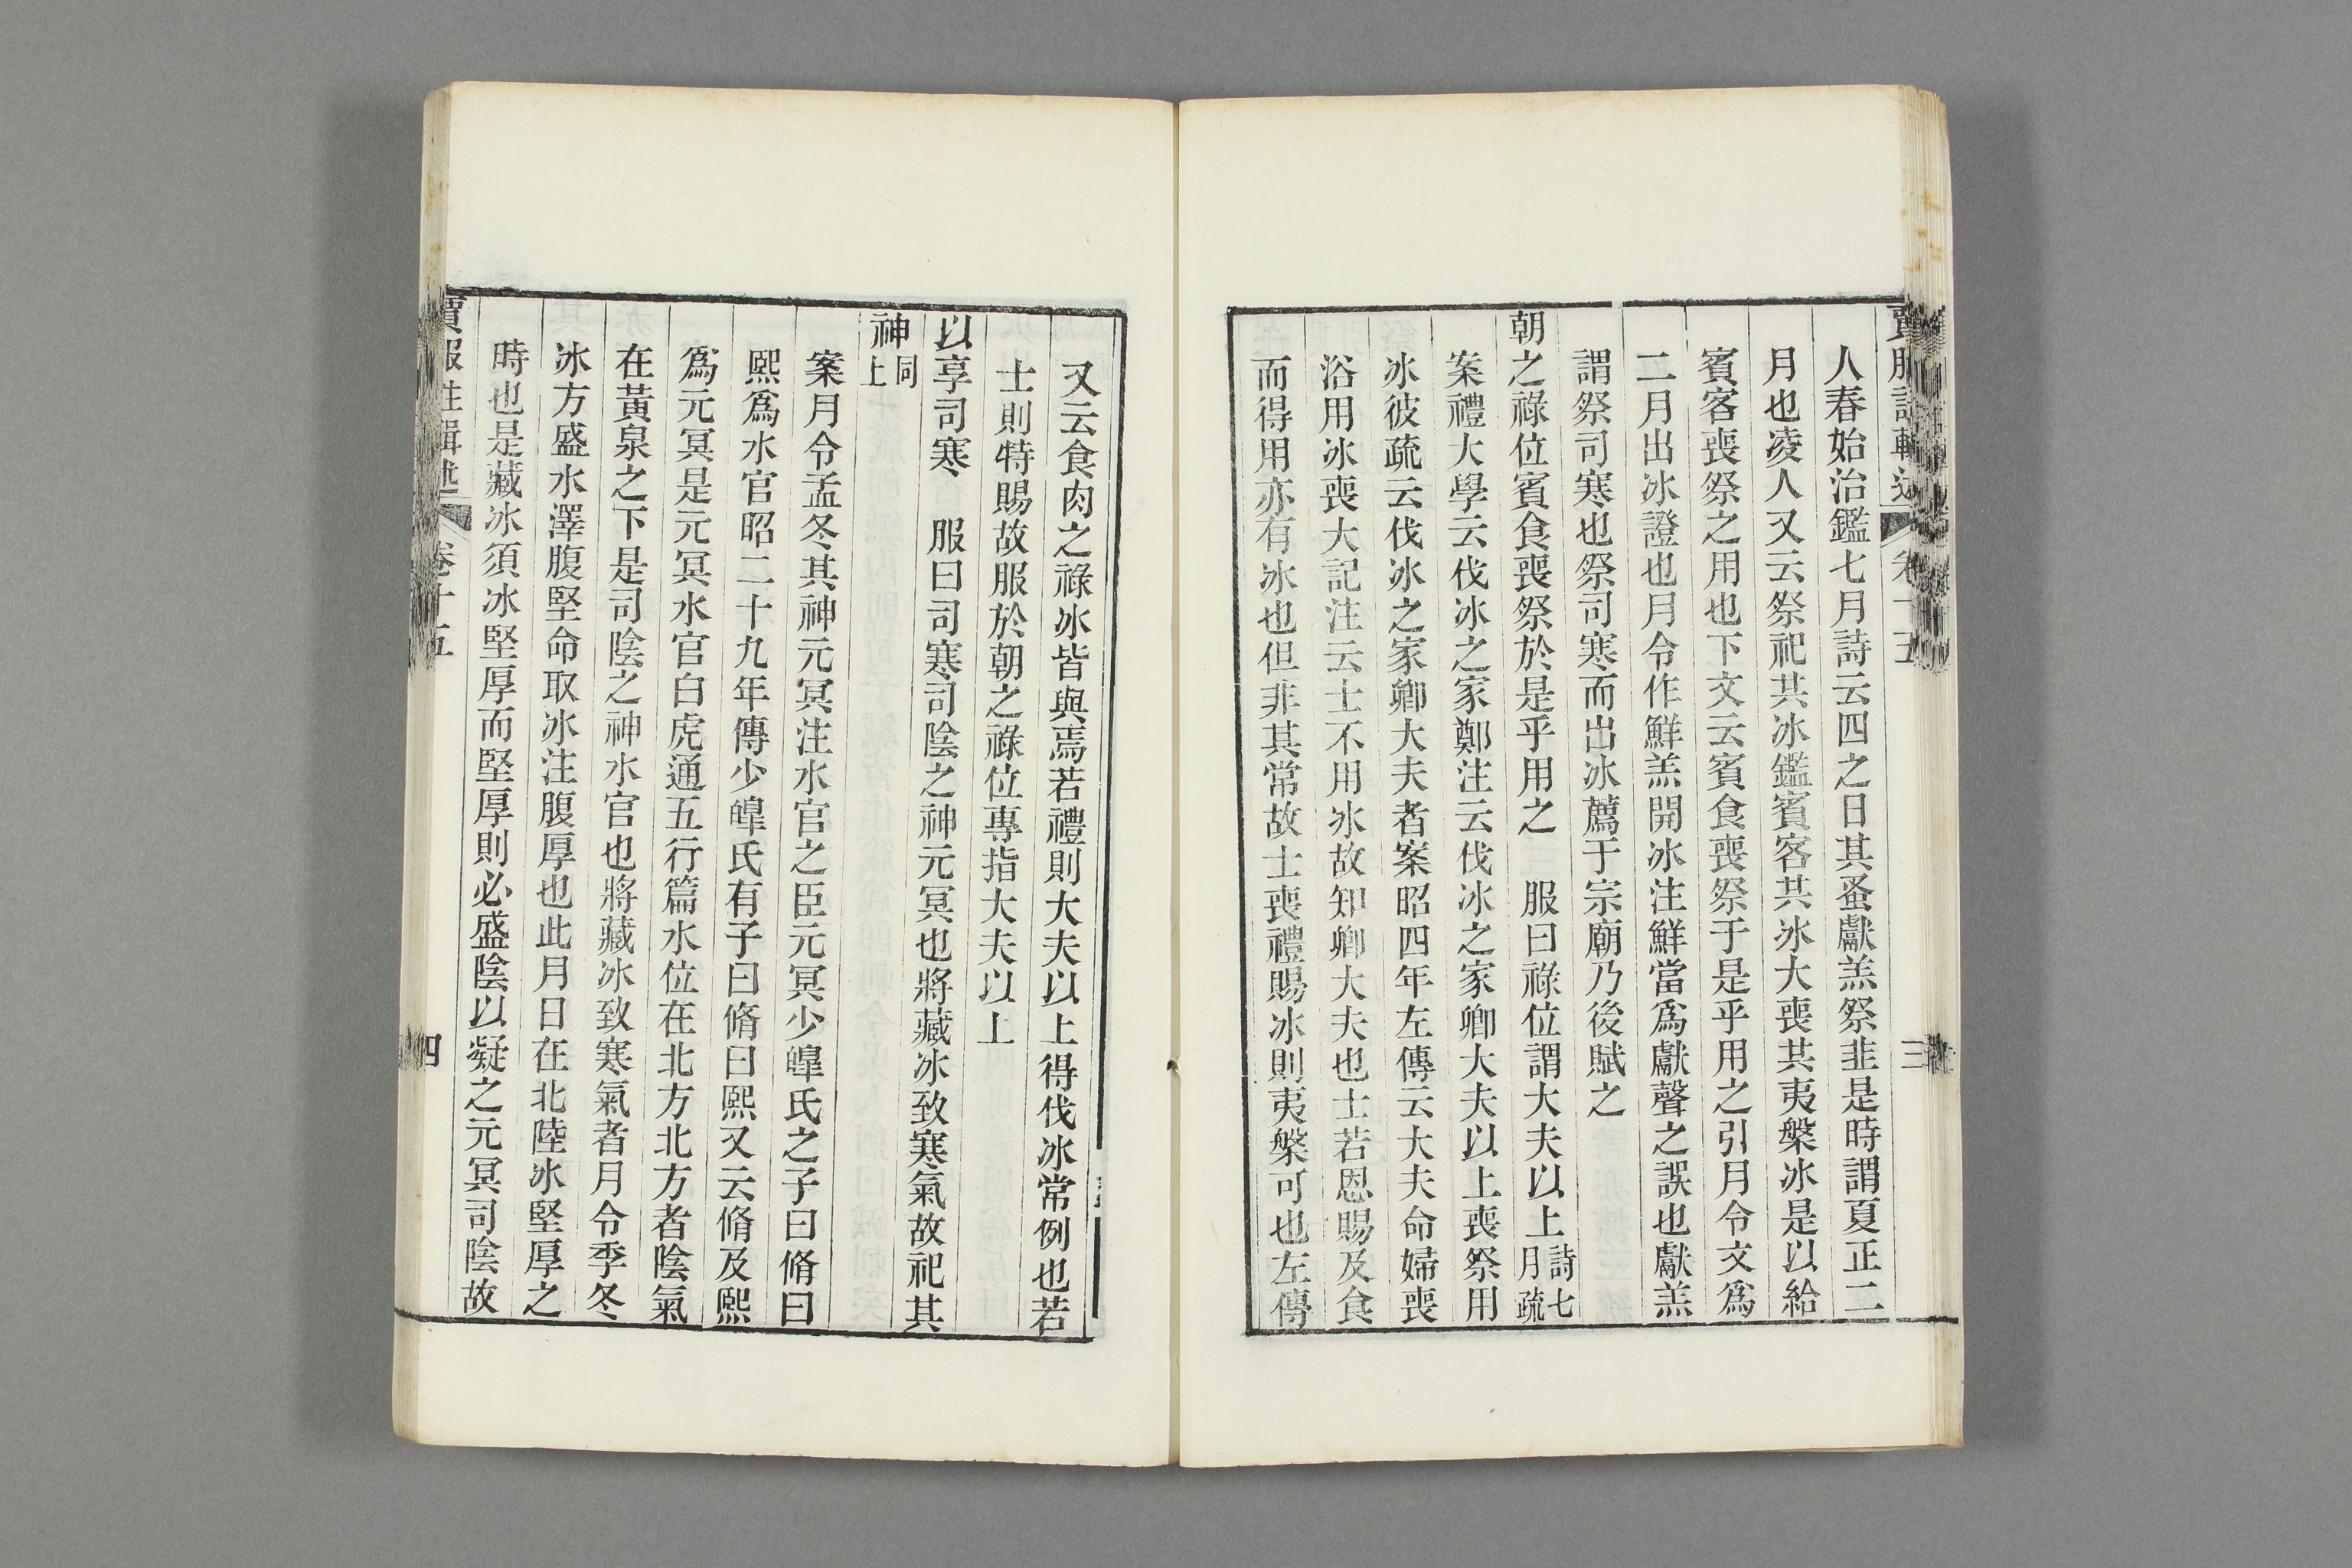 人春始治鑑七月詩云四之日其蚤獻羔祭韭是時謂夏正二
月也凌人又云祭祀共冰鑑賓客共冰大喪共夷槃冰是以給
賓客喪祭之用也下文云賓食喪祭于是乎用之引月令文爲
二月出冰證也月令作鮮羔開冰注鮮當爲獻聲之誤也獻羔
謂祭司寒也祭司寒而出冰薦于宗廟乃後賦之
朝之祿位賓食喪祭於是乎用之 服曰祿位謂大夫以上詩七月疏
案禮大學云伐冰之家鄭注云伐冰之家卿大夫以上喪祭用
冰彼疏云伐冰之家卿大夫者案昭四年左傳云大夫命婦喪
浴用冰喪大記注云士不用冰故知卿大夫也士若恩賜及食
而得用亦有冰也但非其常故士喪禮賜冰則夷槃可也左傳
又云食肉之祿冰皆與焉若禮則大夫以上得伐冰常例也若
士則特賜故服於朝之祿位專指大夫以上
以享司寒 服曰司寒司陰之神元冥也將藏冰致寒氣故祀其
神同上
案月令孟冬其神元冥注水官之臣元冥少皥氏之子曰脩曰
熙爲水官昭二十九年傳少皥氏有子曰脩曰熙又云脩及熙
爲元冥是元冥水官白虎通五行篇水位在北方北方者陰氣
在黃泉之下是司陰之神水官也將藏冰致寒氣者月令季冬
冰方盛水澤腹堅命取冰注腹厚也此月日在北陸冰堅厚之
時也是藏冰須冰堅厚而堅厚則必盛陰以凝之元冥司陰故
賈服注輯述 卷十五 四